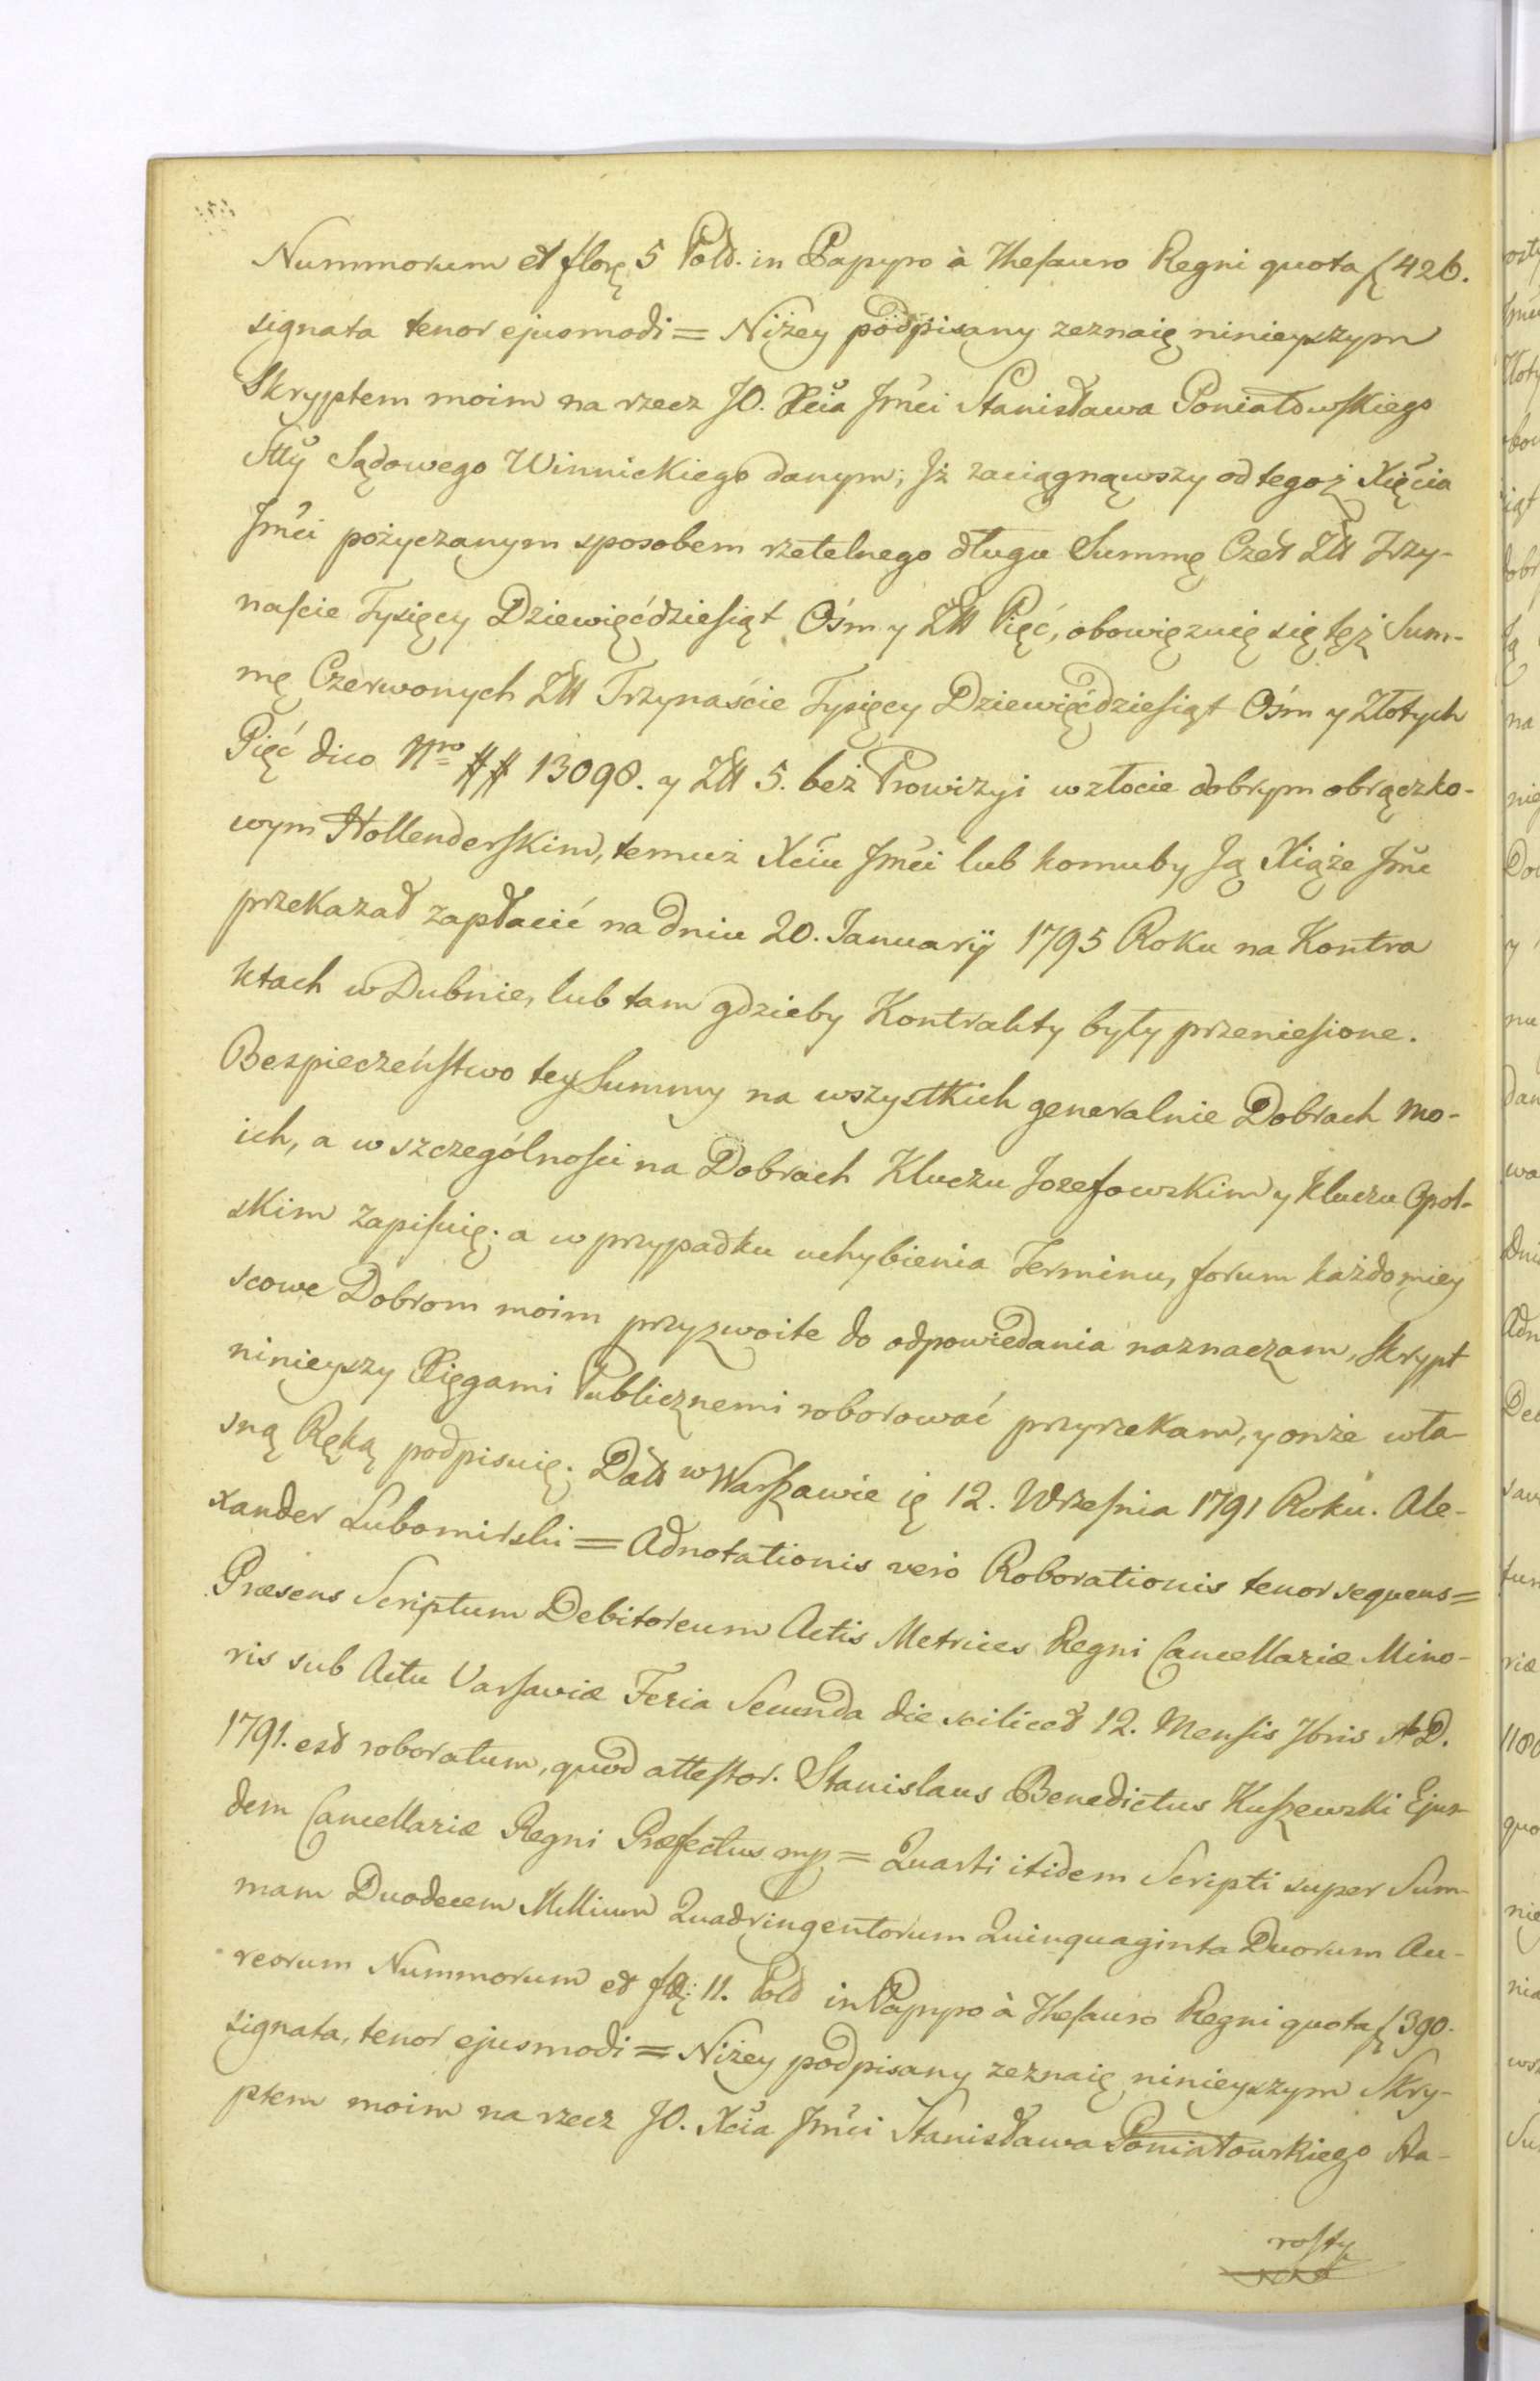 Nummorum et florę 5 Pold. in Papyro à Thesauro Regni quota f 426.
signata tenor ejusmodi = Niżey podpisany zeznaię ninieyszym
Skryptem moim na rzecz JO. Xcia Jmći Stanisława Poniatowskiego
Stty Sądowego Winnickiego danym; Jż zaciągnąwszy od tegoż Xięcia
Jmći pożyczanym sposobem rzetelnego długu Summę Czer Złł Trzy-
naście Tysięcy Dziewięćdziesiąt Ośm y Złł Pięć, obowięzuię się tęż Sum-
mę Czerwonych Złł Trzynaście Tysięcy Dziewięćdziesiąt Ośm y Złotych
Pięć dico Nro ## 13098. y Złł 5. beż Prowizyi w złocie dobrym obrączko-
wym Hollenderskim, temuż Xciu Jmći lub komuby Ją Xiąże Jmć
przekazał zapłacić na dniu 20. Januarij 1795 Roku na Kontra
ktach w Dubnie, lub tam gdzieby Kontrakty były przeniesione.
Bespieczeństwo tey Summy na wszystkich generalnie Dobrach mo-
ich, a w szczególności na Dobrach Kluczu Jozefowskim y Kluczu Opol-
skim zapisuię; a w przypadku uchybienia Terminu, forum każdomiey
scowe Dobrom moim przyzwoite do odpowiedania naznaczam, Skrypt
ninieyszy Xięgami Publicznemi roborować przyrzekam, y onże wła-
sną Ręką podpisuię; Datt w Warszawie ię 12. Września 1791 Roku. Ale-
xander Lubomirski = Adnotationis verò Roborationis tenor sequens =
Præsens Scriptum Debitoreum Actis Metrices Regni Cancellariæ Mino-
ris sub Actu Varsaviæ Feria Secunda die scilicet 12. Mensis 7bris A D.
1791. est roboratum, quod attestor. Stanislaus Benedictus Kuszewski Ejus-
dem Cancellariæ Regni Præfectus mp = Quarti itidem Scripti super Sum-
mam Duodecem Millium Quadringentorum Quinquaginta Duorum Au-
reorum Nummorum et flę: 11. Pold in Papyro à Thesauro Regni quota f 390.
signata, tenor ejusmodi = Niżey podpisany zeznaię ninieyszym Skry-
ptem moim na rzecz JO. Xcia Jmći Stanisława Poniatowskiego Sta-
rosty